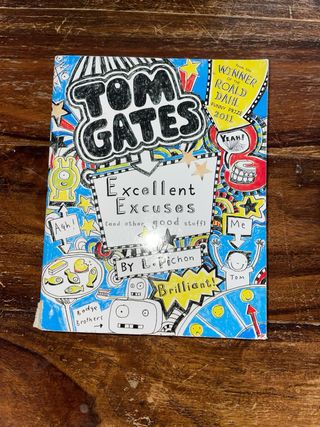 TOM
GATES
from the
WINNER
OF THE
ROALD
DAHL
FUNNY PRIZE
2011
YEAH!
Excellent
Excuses
(and other good stuff)
Agh!
Me
By L. Pichon
TOM
Brilliant!
Badge
Brothers